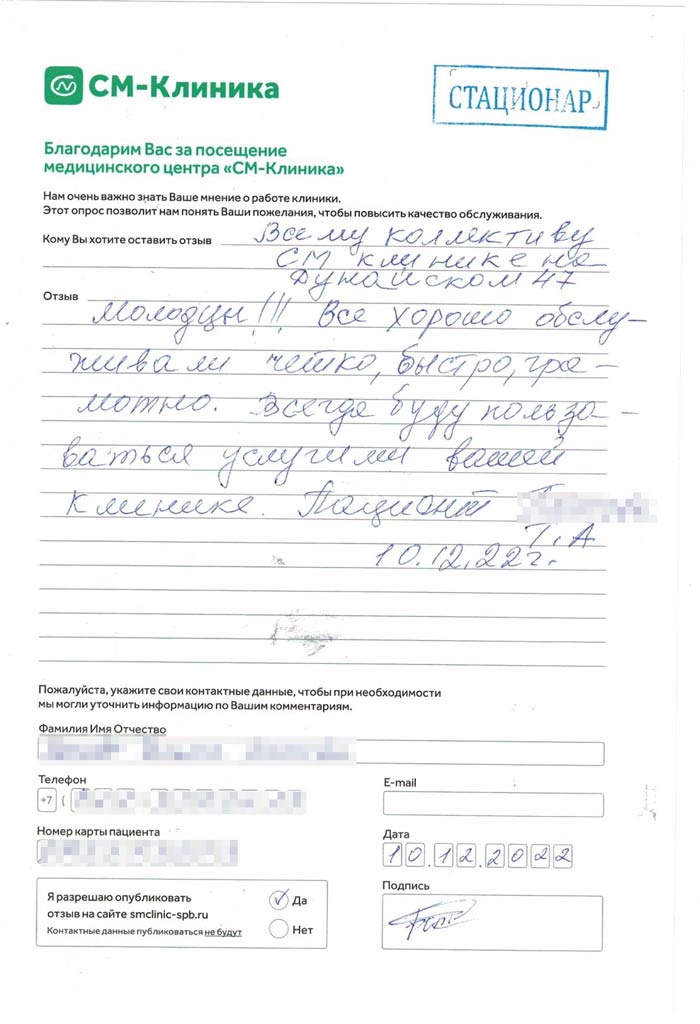 СМ-Клиника
СТАЦИОНАР
Благодарим Вас за посещение
медицинского центра «СМ-Клиника»
Нам очень важно знать Ваше мнение о работе клиники.
Этот опрос позволит нам понять Ваши пожелания, чтобы повысить качество обслуживания.
Кому Вы хотите оставить отзыв Всему коллективу
СМ клинике на
Дунайском 47
Отзыв
Молодцы!!! Все хорошо обслу-
живали четко, быстро, гра-
мотно. Всегда буду пользо-
ваться услугими вашей
клинике. Пациент
Т.А
10.12.22г.
Пожалуйста, укажите свои контактные данные, чтобы при необходимости
мы могли уточнить информацию по Вашим комментариям.
Фамилия Имя Отчество
Телефон
E-mail
+7 (
Номер карты пациента
Дата
10.12.2022
Подпись
Я разрешаю опубликовать
отзыв на сайте smclinic-spb.ru
Контактные данные публиковаться не будут
Да
Нет